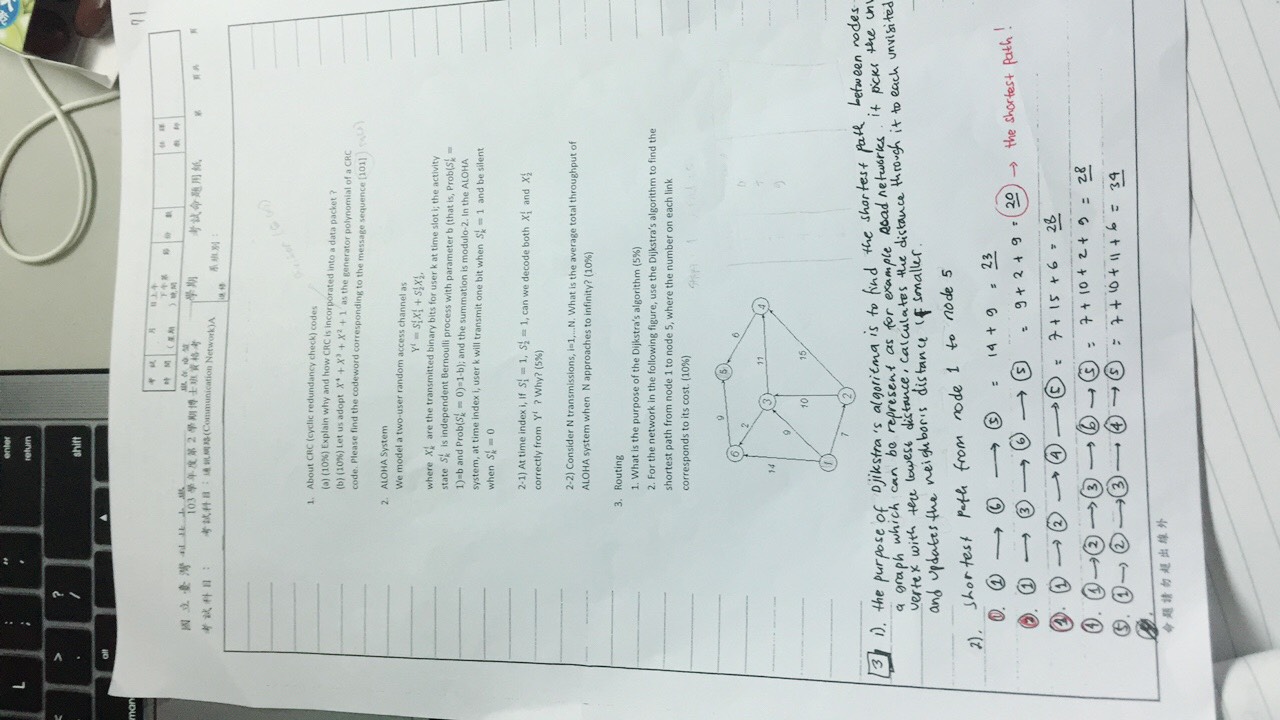 國立臺灣科技大學
103學年度第2學期博士班資格考
學期
考試命題用紙
第
頁共
頁
考試科目：
系班別：
考試科目：通訊網路(Communication Network)A
考試
時間
月
日
上午
下午
晚間
(星期
)
第
節
份數
任課
教師
1. About CRC (cyclic redundancy check) codes
(a) (10%) Explain why and how CRC is incorporated into a data packet ?
(b) (10%) Let us adopt X⁴ + X³ + X² + 1 as the generator polynomial of a CRC
code. Please find the codeword corresponding to the message sequence [101]
2. ALOHA System
We model a two-user random access channel as
Yⁱ = S₁ⁱX₁ⁱ + S₂ⁱX₂ⁱ,
where Xₖⁱ are the transmitted binary bits for user k at time slot i; the activity
state Sₖⁱ is independent Bernoulli process with parameter b (that is, Prob(Sₖⁱ =
1)=b and Prob(Sₖⁱ = 0)=1-b); and the summation is modulo-2. In the ALOHA
system, at time index i, user k will transmit one bit when Sₖⁱ = 1 and be silent
when Sₖⁱ = 0
2-1) At time index i, if S₁ⁱ = 1, S₂ⁱ = 1, can we decode both X₁ⁱ and X₂ⁱ
correctly from Yⁱ ? Why? (5%)
2-2) Consider N transmissions, i=1,..N. What is the average total throughput of
ALOHA system when N approaches to infinity? (10%)
3. Routing
1. What is the purpose of the Dijkstra's algorithm (5%)
2. For the network in the following figure, use the Dijkstra's algorithm to find the
shortest path from node 1 to node 5, where the number on each link
corresponds to its cost. (10%)
5
9
6
6
2
11
4
3
14
9
10
15
1
7
2
3 1). the purpose of Djikstra's algoritma is to find the shortest path between nodes
a graph which can be represent as for example Road networks. it picks the
vertex with the lowest distance, calculates the distance through it to each unvisited
and updates the neighbor's distance if smaller.
2). shortest path from node 1 to node 5
①. ① → ⑥ → ⑤ = 14 + 9 = 23
②. ① → ③ → ⑥ → ⑤ = 9 + 2 + 9 = 20 → the shortest path!
③. ① → ② → ④ → ⑤ = 7 + 15 + 6 = 28
④. ① → ② → ③ → ⑥ → ⑤ = 7 + 10 + 2 + 9 = 28
⑤. ① → ② → ③ → ④ → ⑤ = 7 + 10 + 11 + 6 = 34
命題請勿超出線外
71
enter
return
shift
L
alt